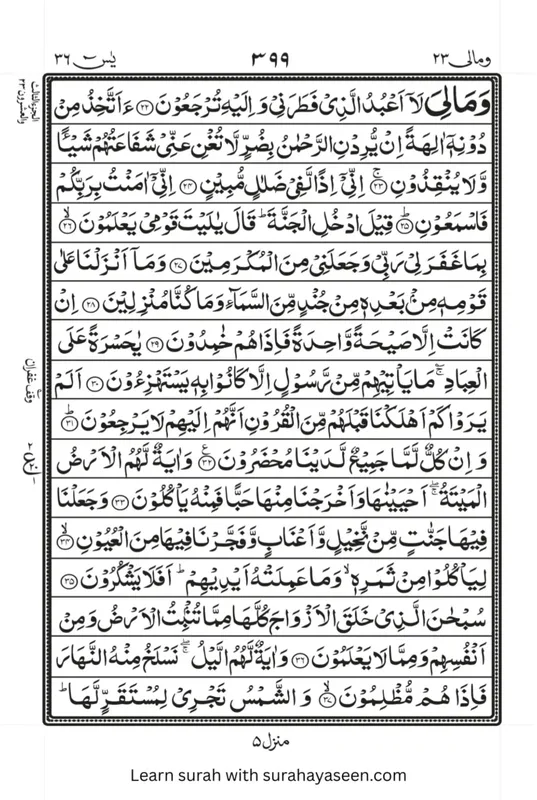 یٰسٓ ۳۶ ۳۹۹ ومالی ۲۳
وَمَا لِیَ لَاۤ اَعْبُدُ الَّذِیْ فَطَرَنِیْ وَ اِلَیْهِ تُرْجَعُوْنَ ﴿۲۲﴾ ءَاَتَّخِذُ مِنْ
دُوْنِهٖۤ اٰلِهَةً اِنْ یُّرِدْنِ الرَّحْمٰنُ بِضُرٍّ لَّا تُغْنِ عَنِّیْ شَفَاعَتُهُمْ شَیْـًٔا
وَّ لَا یُنْقِذُوْنِ ﴿۲۳﴾ۚ اِنِّیْۤ اِذًا لَّفِیْ ضَلٰلٍ مُّبِیْنٍ ﴿۲۴﴾ اِنِّیْۤ اٰمَنْتُ بِرَبِّكُمْ
فَاسْمَعُوْنِ ﴿۲۵﴾ؕ قِیْلَ ادْخُلِ الْجَنَّةَ ؕ قَالَ یٰلَیْتَ قَوْمِیْ یَعْلَمُوْنَ ﴿۲۶﴾ۙ
بِمَا غَفَرَ لِیْ رَبِّیْ وَجَعَلَنِیْ مِنَ الْمُكْرَمِیْنَ ﴿۲۷﴾ وَمَاۤ اَنْزَلْنَا عَلٰی
قَوْمِهٖ مِنْۢ بَعْدِهٖ مِنْ جُنْدٍ مِّنَ السَّمَآءِ وَمَا كُنَّا مُنْزِلِیْنَ ﴿۲۸﴾ اِنْ
كَانَتْ اِلَّا صَیْحَةً وَّاحِدَةً فَاِذَا هُمْ خٰمِدُوْنَ ﴿۲۹﴾ یٰحَسْرَةً عَلَی
الْعِبَادِ ۚ مَا یَاْتِیْهِمْ مِّنْ رَّسُوْلٍ اِلَّا كَانُوْا بِهٖ یَسْتَهْزِءُوْنَ ﴿۳۰﴾ اَلَمْ
یَرَوْا كَمْ اَهْلَكْنَا قَبْلَهُمْ مِّنَ الْقُرُوْنِ اَنَّهُمْ اِلَیْهِمْ لَا یَرْجِعُوْنَ ﴿۳۱﴾ؕ
وَ اِنْ كُلٌّ لَّمَّا جَمِیْعٌ لَّدَیْنَا مُحْضَرُوْنَ ﴿۳۲﴾ وَاٰیَةٌ لَّهُمُ الْاَرْضُ
الْمَیْتَةُ ۚۖ اَحْیَیْنٰهَا وَاَخْرَجْنَا مِنْهَا حَبًّا فَمِنْهُ یَاْكُلُوْنَ ﴿۳۳﴾ وَجَعَلْنَا
فِیْهَا جَنّٰتٍ مِّنْ نَّخِیْلٍ وَّ اَعْنَابٍ وَّفَجَّرْنَا فِیْهَا مِنَ الْعُیُوْنِ ﴿۳۴﴾ۙ
لِیَاْكُلُوْا مِنْ ثَمَرِهٖ ۙ وَمَا عَمِلَتْهُ اَیْدِیْهِمْ ؕ اَفَلَا یَشْكُرُوْنَ ﴿۳۵﴾
سُبْحٰنَ الَّذِیْ خَلَقَ الْاَزْوَاجَ كُلَّهَا مِمَّا تُنْۢبِتُ الْاَرْضُ وَمِنْ
اَنْفُسِهِمْ وَمِمَّا لَا یَعْلَمُوْنَ ﴿۳۶﴾ وَاٰیَةٌ لَّهُمُ الَّیْلُ ۚۖ نَسْلَخُ مِنْهُ النَّهَارَ
فَاِذَا هُمْ مُّظْلِمُوْنَ ﴿۳۷﴾ۙ وَ الشَّمْسُ تَجْرِیْ لِمُسْتَقَرٍّ لَّهَا ؕ
الجزء الثالث
والعشرون ۲۳
وقف غفران
منزل ۵
Learn surah with surahayaseen.com